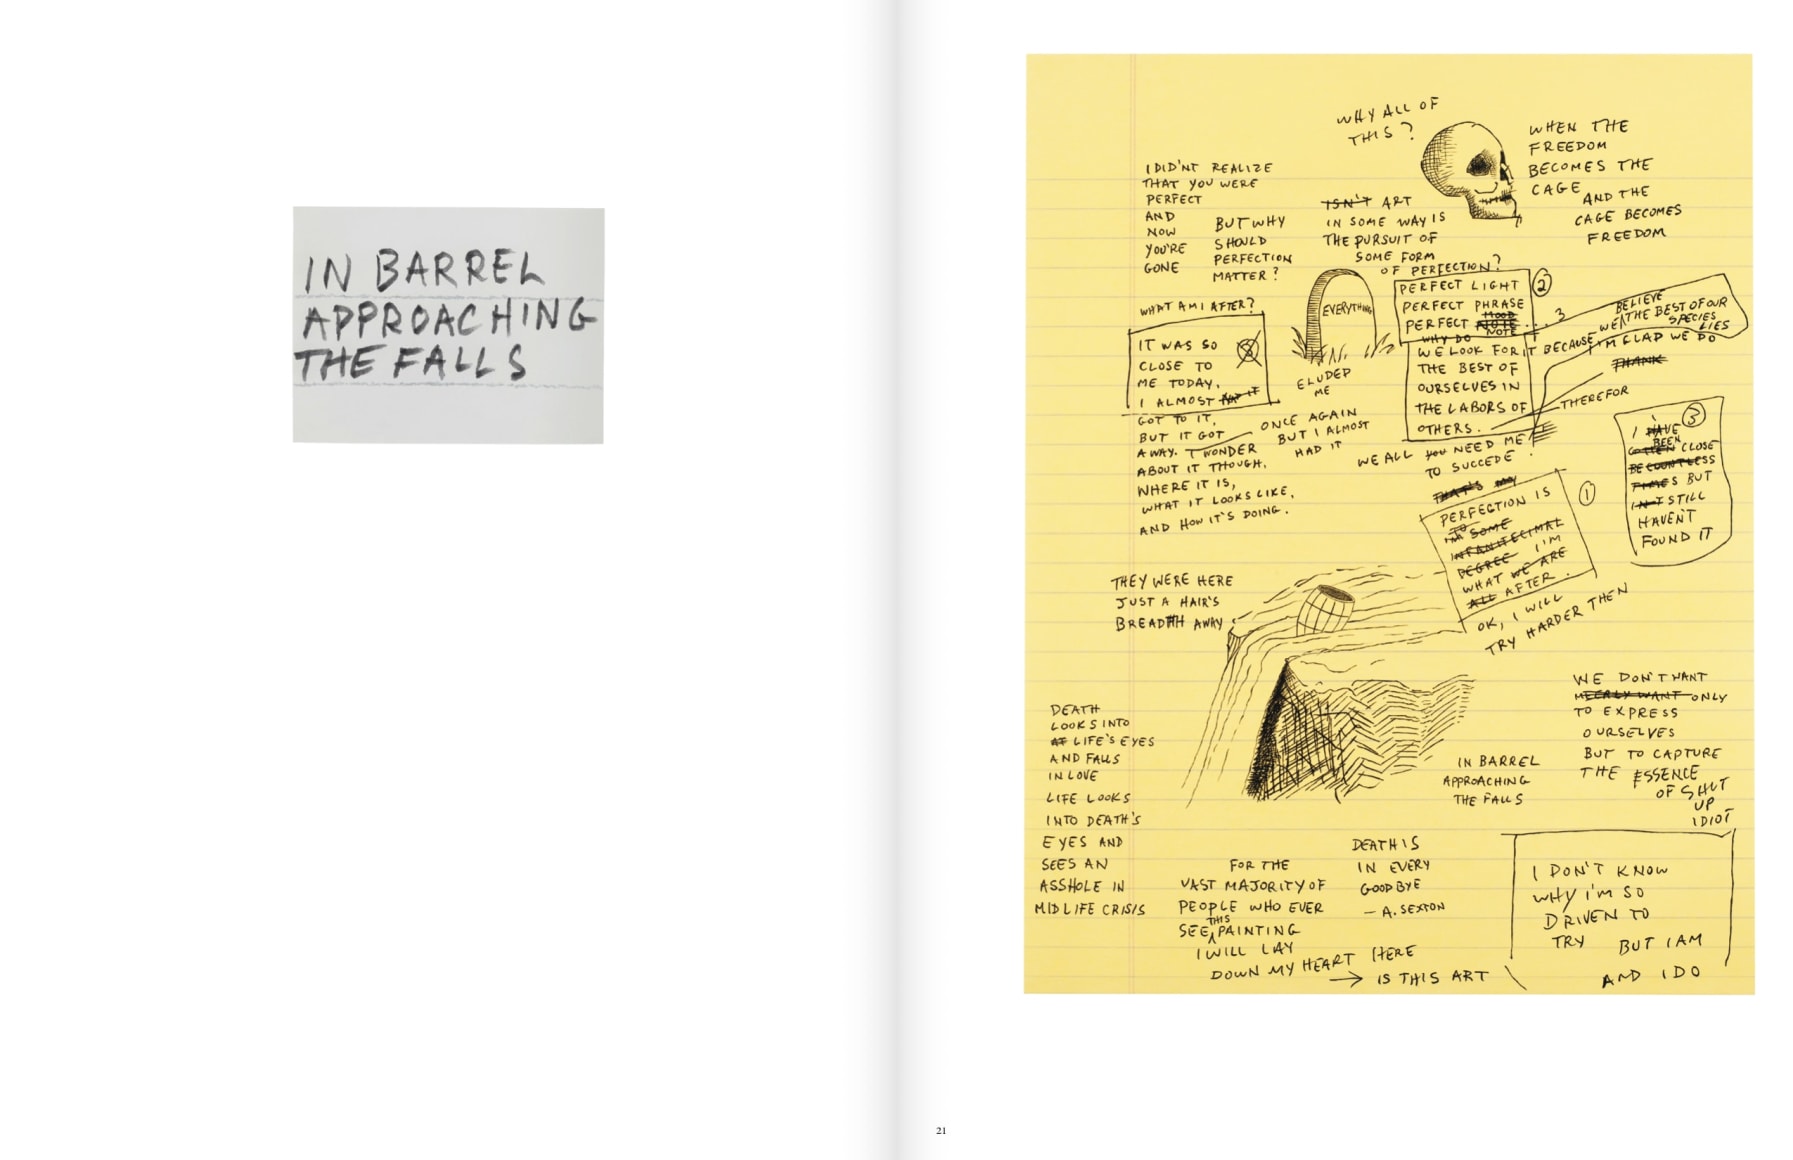 IN BARREL
APPROACHING
THE FALLS
WHY ALL OF
THIS?
WHEN THE
FREEDOM
BECOMES THE
CAGE
AND THE
CAGE BECOMES
FREEDOM
I DID'NT REALIZE
THAT YOU WERE
PERFECT
AND
NOW
YOU'RE
GONE
BUT WHY
SHOULD
PERFECTION
MATTER?
ISN'T ART
IN SOME WAY IS
THE PURSUIT OF
SOME FORM
OF PERFECTION?
WHAT AM I AFTER?
IT WAS SO
CLOSE TO
ME TODAY.
I ALMOST HAD IT
GOT TO IT,
BUT IT GOT
AWAY. I WONDER
ABOUT IT THOUGH,
WHERE IT IS,
WHAT IT LOOKS LIKE,
AND HOW IT'S DOING.
EVERYTHING
ELUDED
ME
ONCE AGAIN
BUT I ALMOST
HAD IT
2
PERFECT LIGHT
PERFECT PHRASE
MOOD
PERFECT NOTE ... 3
NOTE
WHY DO
WE LOOK FOR IT BECAUSE
THE BEST OF
OURSELVES IN
THE LABORS OF
OTHERS.
BELIEVE
WE THE BEST OF OUR
SPECIES
LIES
I'M GLAD WE DO
THANK
THEREFOR
WE ALL YOU NEED ME
TO SUCCEDE.
3
I HAVE
BEEN
GOTTEN CLOSE
BE COUNTLESS
TIMES BUT
IN I STILL
HAVEN'T
FOUND IT
THAT'S MY
1
PERFECTION IS
TO
I'M SOME
INFANITECIMAL
DEGREE I'M
WHAT WE ARE
ALL AFTER.
OK, I WILL
TRY HARDER THEN
THEY WERE HERE
JUST A HAIR'S
BREADTH AWAY
DEATH
LOOKS INTO
AT LIFE'S EYES
AND FALLS
IN LOVE
LIFE LOOKS
INTO DEATH'S
EYES AND
SEES AN
ASSHOLE IN
MIDLIFE CRISIS
IN BARREL
APPROACHING
THE FALLS
WE DON'T WANT
MEERLY WANT ONLY
TO EXPRESS
OURSELVES
BUT TO CAPTURE
THE ESSENCE
OF SHUT
UP
IDIOT
FOR THE
VAST MAJORITY OF
PEOPLE WHO EVER
THIS
SEE PAINTING
I WILL LAY
DOWN MY HEART HERE
→ IS THIS ART
DEATH IS
IN EVERY
GOODBYE
— A. SEXTON
I DON'T KNOW
WHY I'M SO
DRIVEN TO
TRY BUT I AM
AND I DO
21